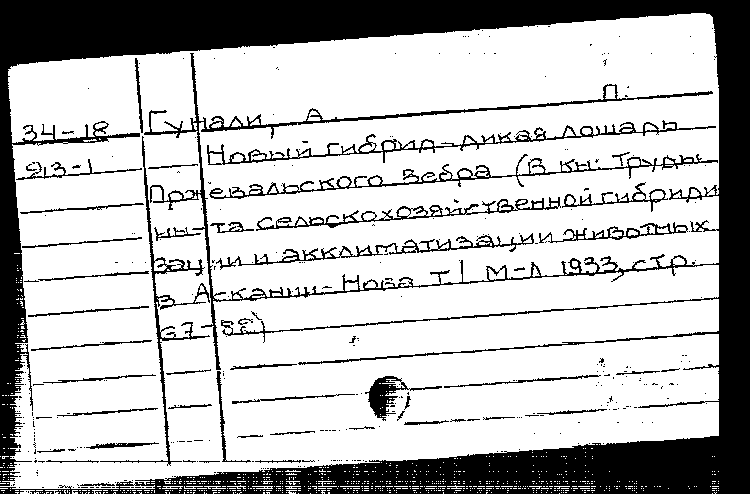 П.
34-18 Гунали, А.
913-1 Новый гибрид-дикая лошадь
Пржевальского Зебра (В кн: Труды
ин-та сельскохозяйственной гибриди
зации и акклиматизации животных
в Аскании-Нова Т.I М-Л 1933, стр.
67-82)